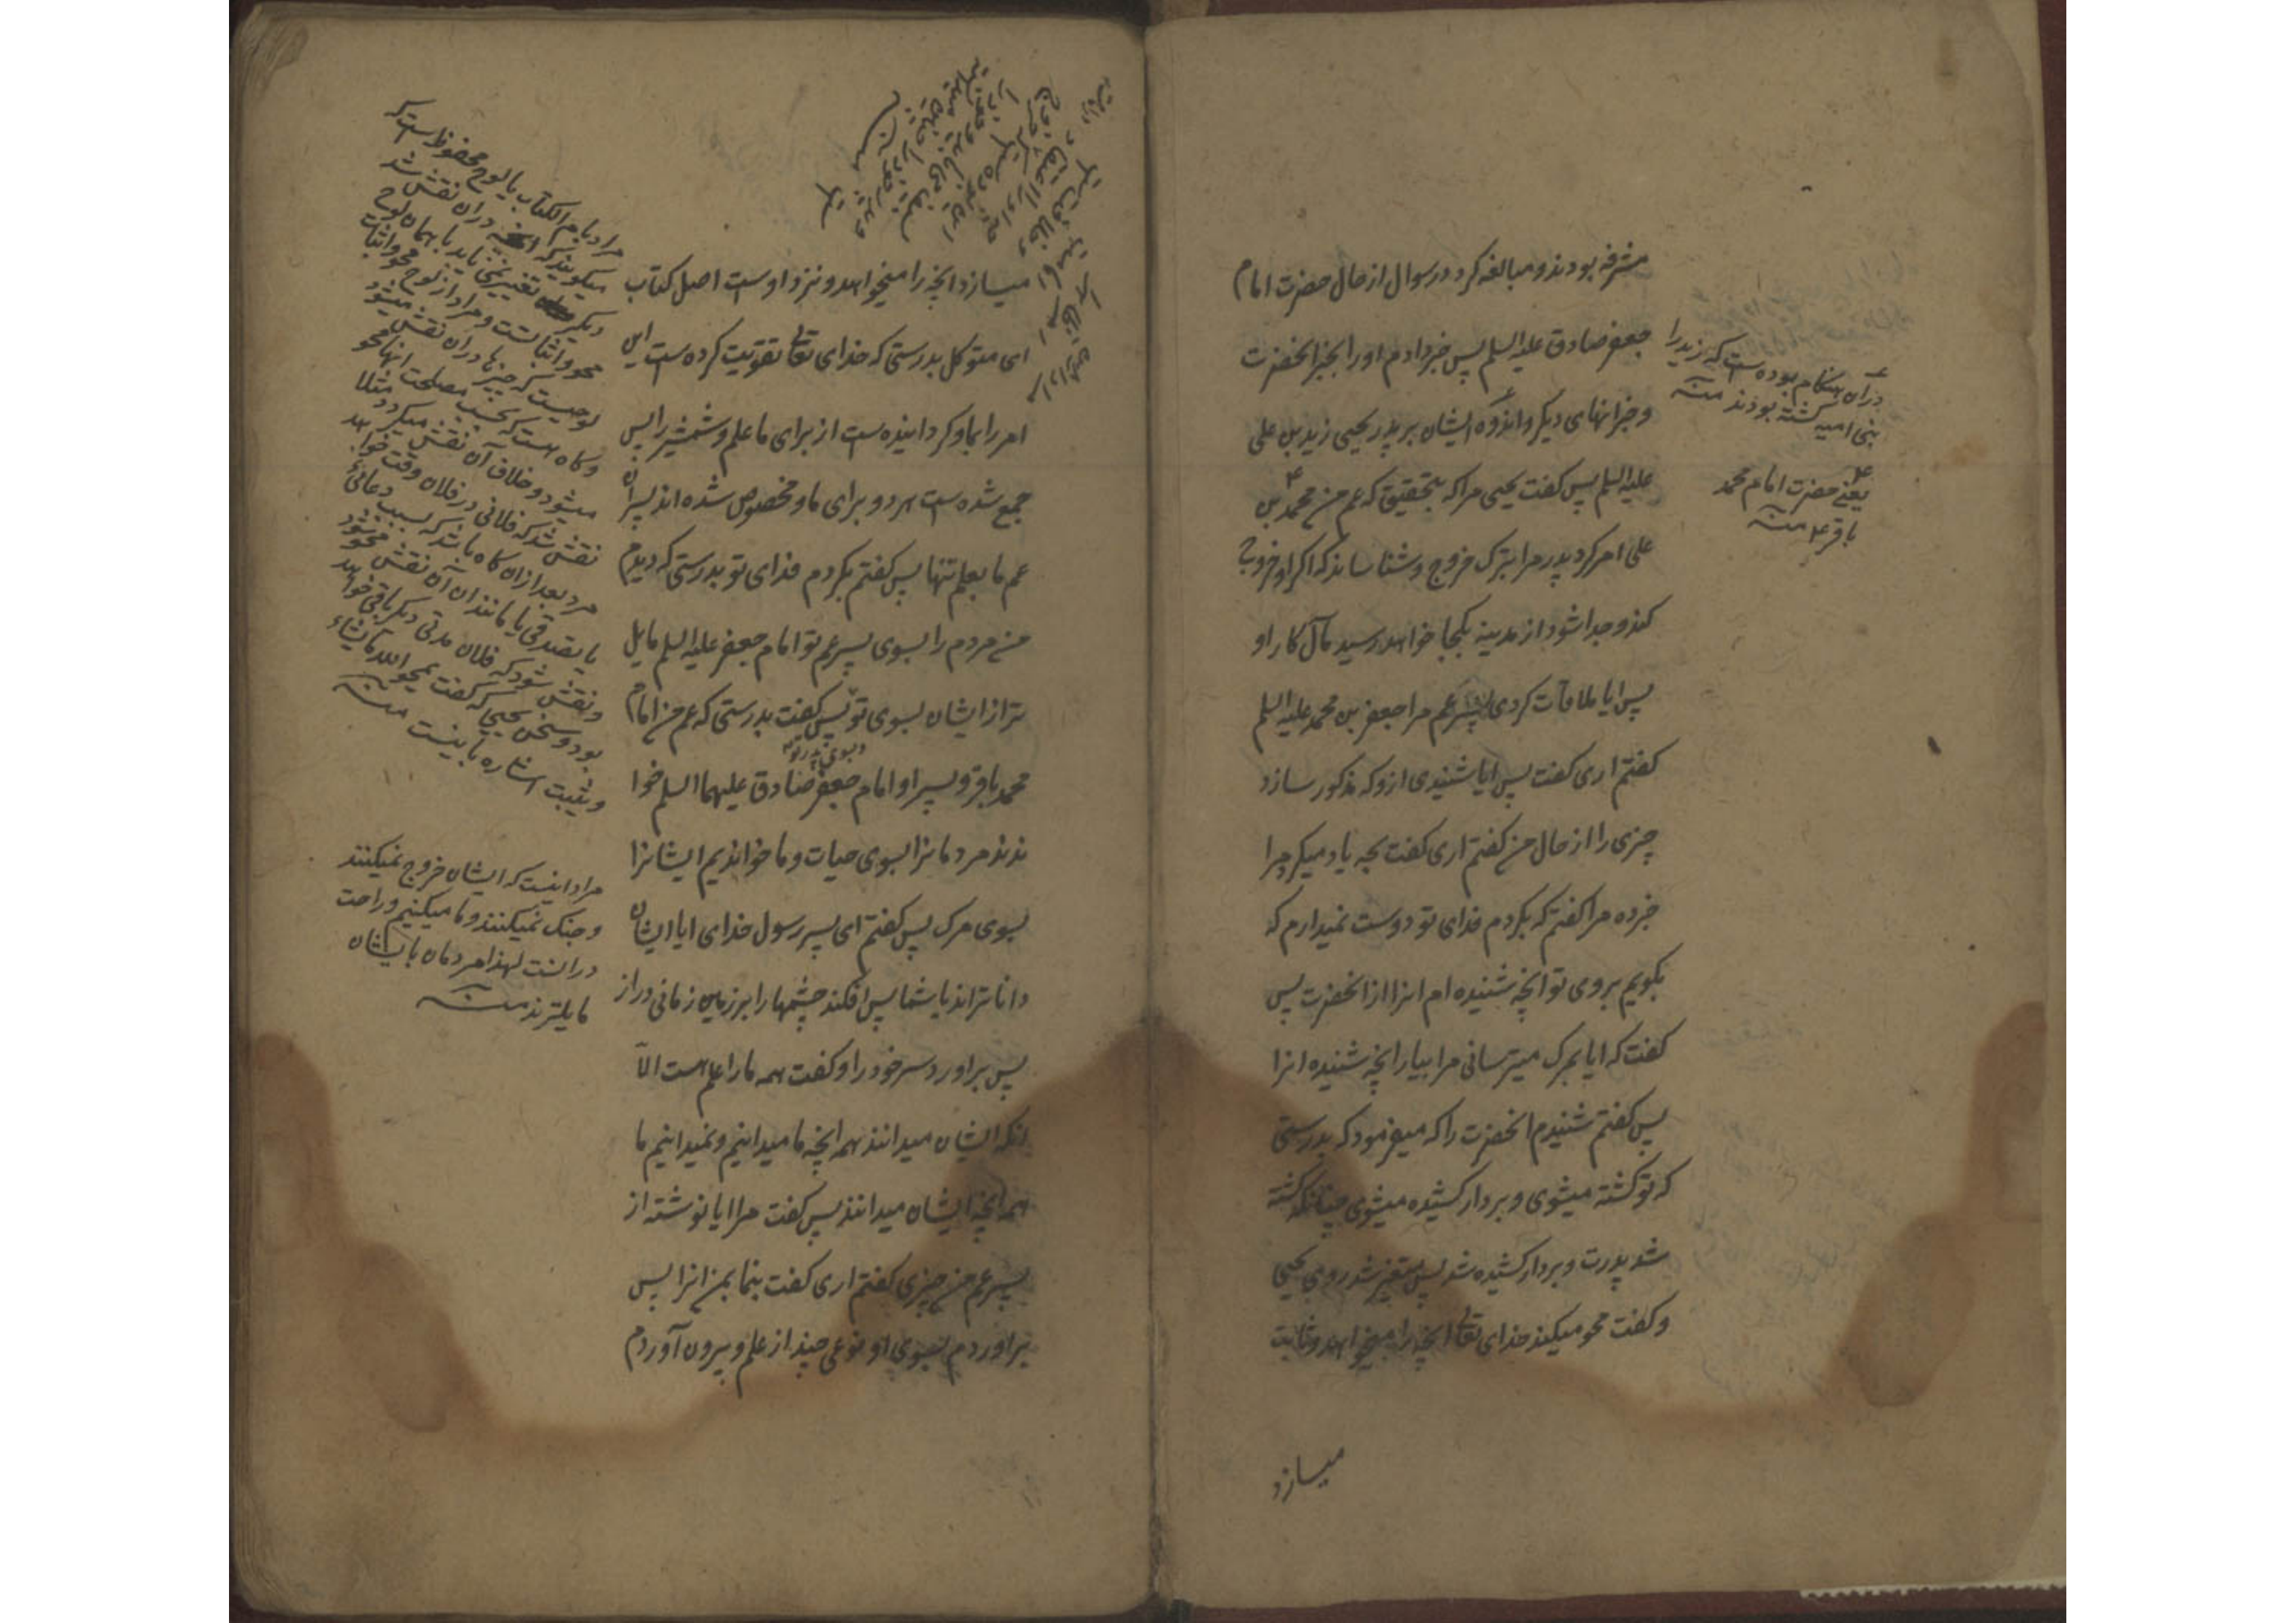 مشرفه بودند و مبالغه کرد در سوال از حال حضرت امام
جعفر صادق علیه السلم پس خبر دادم او را بخبر آنحضرت
و خبر آنهای دیگر و اندوه ایشان بر پدر یحیی زید بن علی
علیه السلم پس کفت یحیی مرا که بتحقیق که عم من محمد بن
علی امر کرد پدر مرا بترک خروج و شناساند که اکر او خروج
کند و جدا شود از مدینه بکجا خواهد رسید مآل کار او
پس ایا ملاقات کردی پسر عم مرا جعفر بن محمد علیه السلم
کفتم اری کفت پس ایا شنیدی ازو که مذکور سازد
چیزی را از حال من کفتم اری کفت بچه یاد میکرد مرا
خبر ده مرا کفتم که بکردم فدای تو دوست نمیدارم که
بکویم بروی تو انچه شنیده ام انرا از انحضرت پس
کفت که ایا بمرک میترسانی مرا بیار انچه شنیده انرا
پس کفتم شنیدم انحضرت را که میفرمود که بدرستی
که تو کشته میشوی و بردار کشیده میشوی چنانکه کشته
شد پدرت و بردار کشیده شد پس متغیر شد روی یحیی
و کفت محو میکند خدای تعالی انچه را میخواهد و ثابت
میسازد
در آن هنکام بوده است که زید را
بنی امیه کشته بودند منه
یعنی حضرت امام محمد
باقر ع منه
میسازد انچه را میخواهد و نزد اوست اصل کتاب
ای متوکل بدرستی که خدای تعالی تقویت کرده است این
امر را بما و کردانیده است از برای ما علم و شمشیر را پس
جمع شده است هر دو برای ما و مخصوص شده اند پسران
عم ما بعلم تنها پس کفتم بکردم فدای تو بدرستی که دیدم
من مردم را بسوی پسر عم تو امام جعفر علیه السلم مایل
تر از ایشان بسوی تو پس کفت بدرستی که عم من امام
و بسوی پدر تو
محمد باقر و پسر او امام جعفر صادق علیهما السلم خوا
ندند مردمانرا بسوی حیات و ما خواندیم ایشانرا
بسوی مرک پس کفتم ای پسر رسول خدای ایا ایشان
داناتراند یا شما پس افکند چشمها را بر زمین زمانی دراز
پس براورد سر خود را و کفت همه ما را علم هست الّا
انکه ایشان میدانند همه انچه ما میدانیم و نمیدانیم ما
همه انچه ایشان میدانند پس کفت مرا ایا نوشته از
پسر عم من چیزی کفتم اری کفت بنما بمن انرا پس
براوردم بسوی او نوعی چند از علم و بیرون آوردم
مراد بام الکتاب یا لوح محفوظ است که
میکویند که انچه در ان نقش شد
دیکر تغییر نمی یابد یا همان لوح
محو و اثباتست و مراد از لوح محو و اثبات
لوحیست که چیزها در ان نقش میشود
و کاه هست که بحسب مصلحت انها محو
میشود و خلاف آن نقش میکردد مثلا
نقش شد که فلانی در فلان وقت خواهد
مرد بعد از ان کاه باشد که بسبب دعائی
یا تصدقی یا مانند ان آن نقش محو شود
و نقش شود که فلان مدتی دیکر باقی خواهد
بود و سخن یحیی که کفت یمحو الله ما یشاء
و یثبت اشاره باینست منه
مراد اینست که ایشان خروج نمیکنند
و جنک نمیکنند و ما میکنیم و راحت
در انست لهذا مردمان بایشان
مایلترند منه